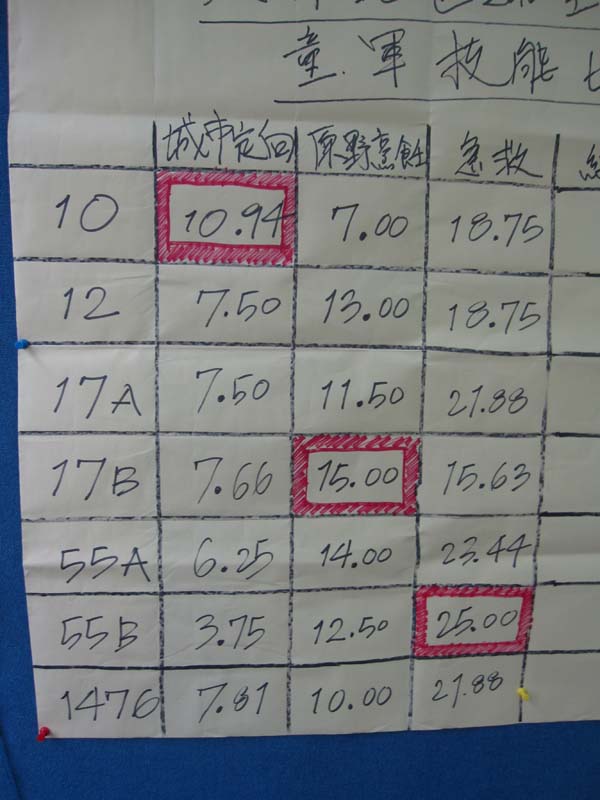 童軍技能
城市定向 原野烹飪 急救
10 10.94 7.00 18.75
12 7.50 13.00 18.75
17A 7.50 11.50 21.88
17B 7.66 15.00 15.63
55A 6.25 14.00 23.44
55B 3.75 12.50 25.00
1476 7.81 10.00 21.88